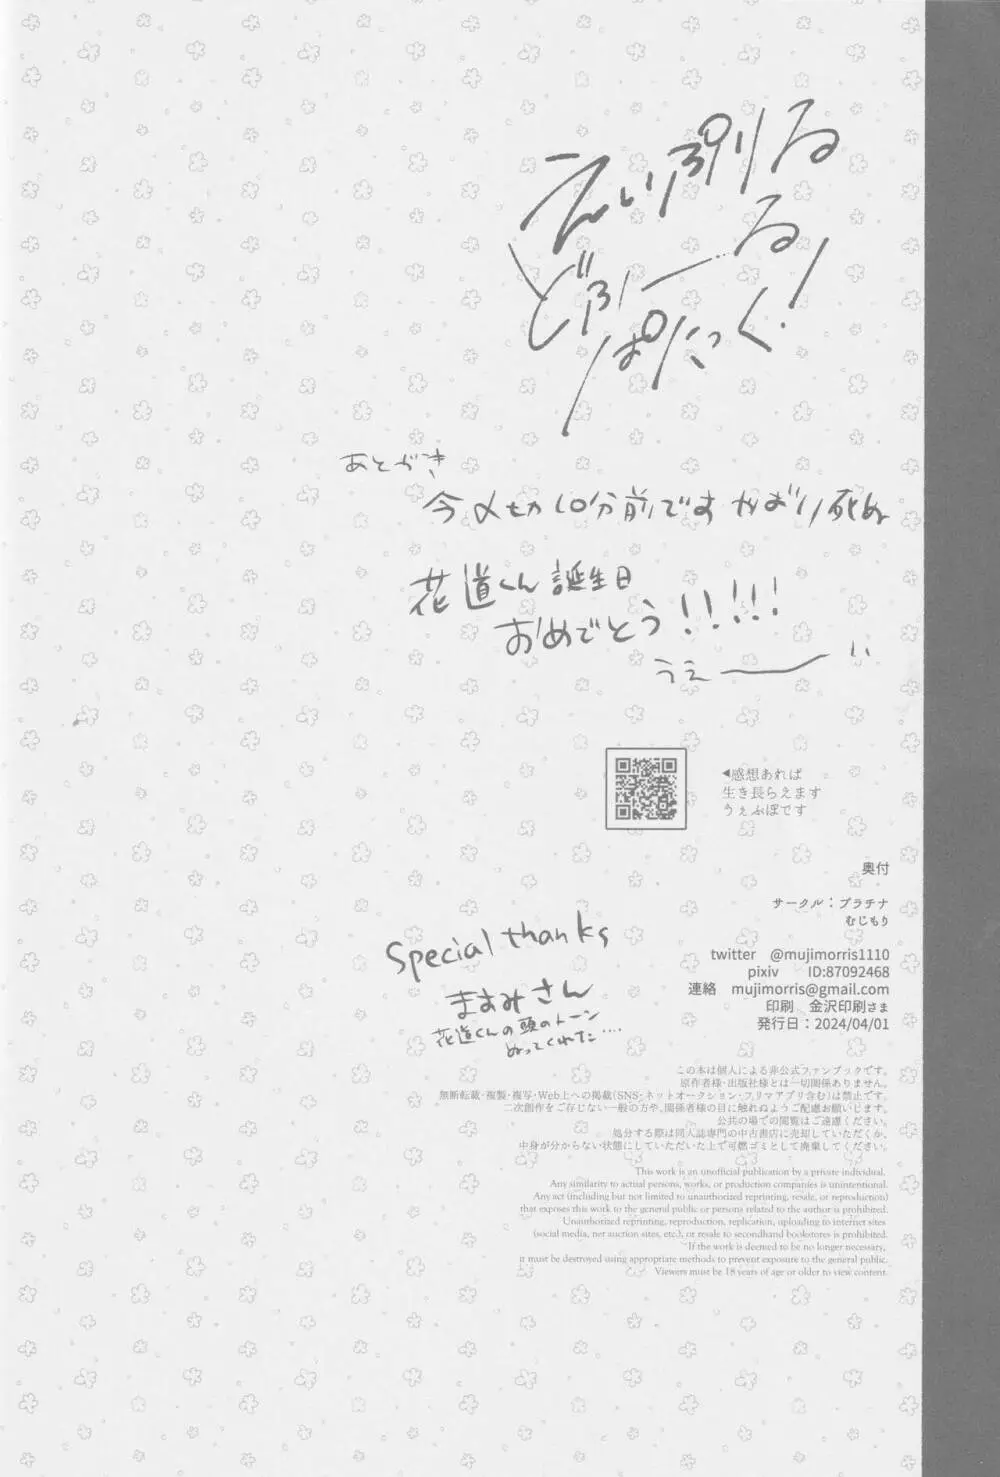 えいぷりる
どふーる
ぱにっく!
あとがき
今〆切10分前です やばい 死ぬ
花道くん誕生日
おめでとう!!!!!
うえー
◀感想あれば
生き長らえます
うぇぶぽです
奥付
サークル：プラチナ
むじもり
twitter @mujimorris1110
pixiv ID:87092468
連絡 mujimorris@gmail.com
印刷 金沢印刷さま
発行日：2024/04/01
Special thanks
ますみさん
花道くんの頭のトーン
ぬってくれた....
この本は個人による非公式ファンブックです。
原作者様・出版社様とは一切関係ありません。
無断転載・複製・複写・Web上への掲載(SNS・ネットオークション・フリマアプリ含む)は禁止です。
二次創作をご存じない一般の方や、関係者様の目に触れぬようご配慮お願いします。
公共の場での閲覧はご遠慮ください。
処分する際は同人誌専門の中古書店に売却していただくか、
中身が分からない状態にしていただいた上で可燃ゴミとして廃棄してください。
This work is an unofficial publication by a private individual.
Any similarity to actual persons, works, or production companies is unintentional.
Any act (including but not limited to unauthorized reprinting, resale, or reproduction)
that exposes this work to the general public or persons related to the author is prohibited.
Unauthorized reprinting, reproduction, replication, uploading to internet sites
(social media, net auction sites, etc.), or resale to secondhand bookstores is prohibited.
If the work is deemed to be no longer necessary,
it must be destroyed using appropriate methods to prevent exposure to the general public.
Viewers must be 18 years of age or older to view content.